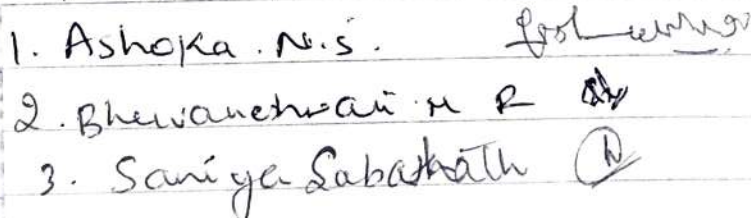 1. Ashoka . N.S.
2. Bhuvaneshwari M R
3. Saniya Sabahath